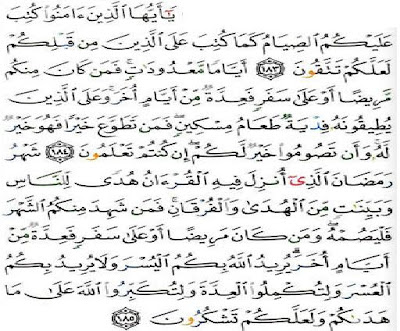 يَـٰٓأَيُّهَا ٱلَّذِينَ ءَامَنُوا۟ كُتِبَ
عَلَيْكُمُ ٱلصِّيَامُ كَمَا كُتِبَ عَلَى ٱلَّذِينَ مِن قَبْلِكُمْ
لَعَلَّكُمْ تَتَّقُونَ ١٨٣ أَيَّامًا مَّعْدُودَٰتٍ ۚ فَمَن كَانَ مِنكُم
مَّرِيضًا أَوْ عَلَىٰ سَفَرٍ فَعِدَّةٌ مِّنْ أَيَّامٍ أُخَرَ ۚ وَعَلَى ٱلَّذِينَ
يُطِيقُونَهُۥ فِدْيَةٌ طَعَامُ مِسْكِينٍ ۖ فَمَن تَطَوَّعَ خَيْرًا فَهُوَ خَيْرٌ
لَّهُۥ ۚ وَأَن تَصُومُوا۟ خَيْرٌ لَّكُمْ ۖ إِن كُنتُمْ تَعْلَمُونَ ١٨٤ شَهْرُ
رَمَضَانَ ٱلَّذِىٓ أُنزِلَ فِيهِ ٱلْقُرْءَانُ هُدًى لِّلنَّاسِ
وَبَيِّنَـٰتٍ مِّنَ ٱلْهُدَىٰ وَٱلْفُرْقَانِ ۚ فَمَن شَهِدَ مِنكُمُ ٱلشَّهْرَ
فَلْيَصُمْهُ ۖ وَمَن كَانَ مَرِيضًا أَوْ عَلَىٰ سَفَرٍ فَعِدَّةٌ مِّنْ
أَيَّامٍ أُخَرَ ۗ يُرِيدُ ٱللَّهُ بِكُمُ ٱلْيُسْرَ وَلَا يُرِيدُ بِكُمُ
ٱلْعُسْرَ وَلِتُكْمِلُوا۟ ٱلْعِدَّةَ وَلِتُكَبِّرُوا۟ ٱللَّهَ عَلَىٰ مَا
هَدَىٰكُمْ وَلَعَلَّكُمْ تَشْكُرُونَ ١٨٥